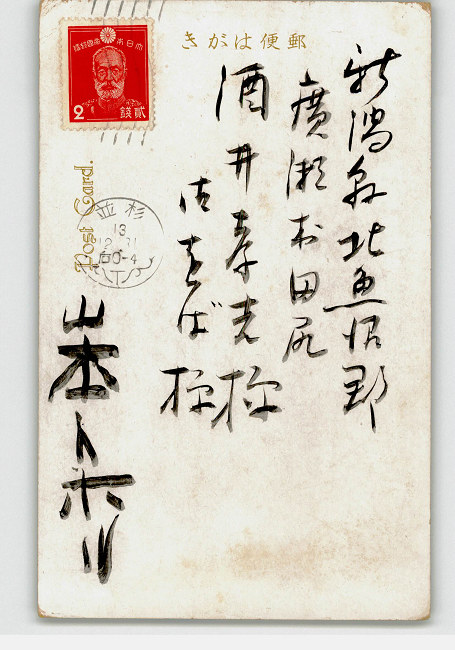 郵便はがき
大日本帝國郵便
2
貳錢
Post Card.
杉並
13
12.11
后0-4
新潟縣北魚沼郡
廣瀬村田尻
酒井孝吉様
山本